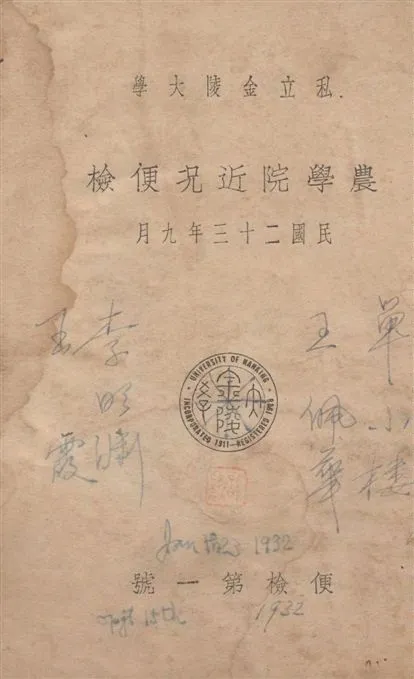 私立金陵大學
農學院近况便檢
民國二十三年九月
單小樓
王佩華
李明
玉霞
UNIVERSITY OF NANKING
金陵大學
INCORPORATED 1911–REGISTERED 1928
1932
便檢第一號
15th
1932